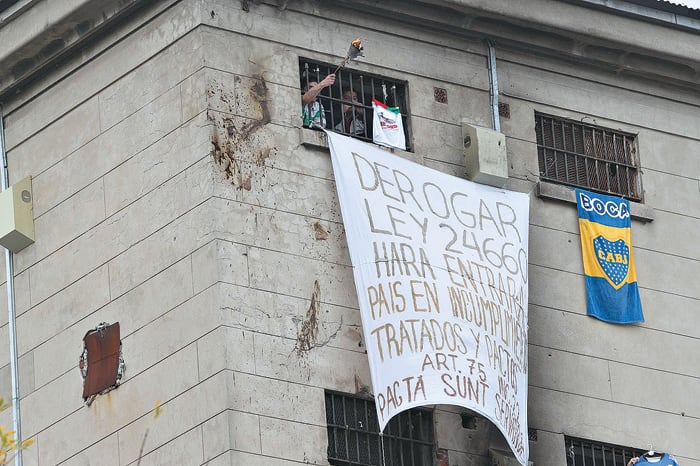 DEROGAR
LEY 24660
HARA ENTRAR A
PAIS EN INCUMPLIMIEN
TRATADOS Y PACTOS
ART. 75
PACTA SUNT
BOCA
CABJ